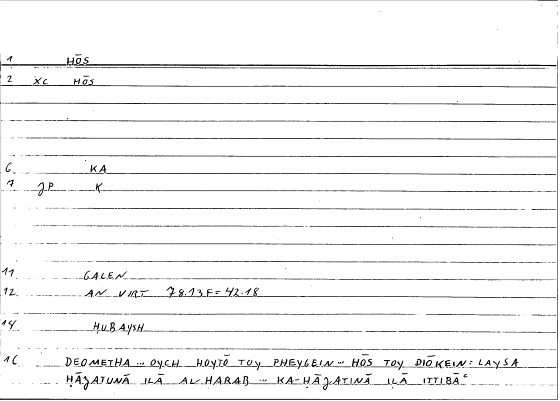 1 HŌS
2 XC HŌS
6 KA
7 JP K
11 GALEN
12. AN VIRT 78.13F=42.18
14. HUBAYSH
16 DEOMETHA … OYCH HOYTŌ TOY PHEYGEIN … HŌS TOY DIŌKEIN = LAYSA
ḤĀǦATUNĀ ILĀ AL-HARAB … KA-ḤĀǦATINĀ ILĀ ITTIBĀʿ